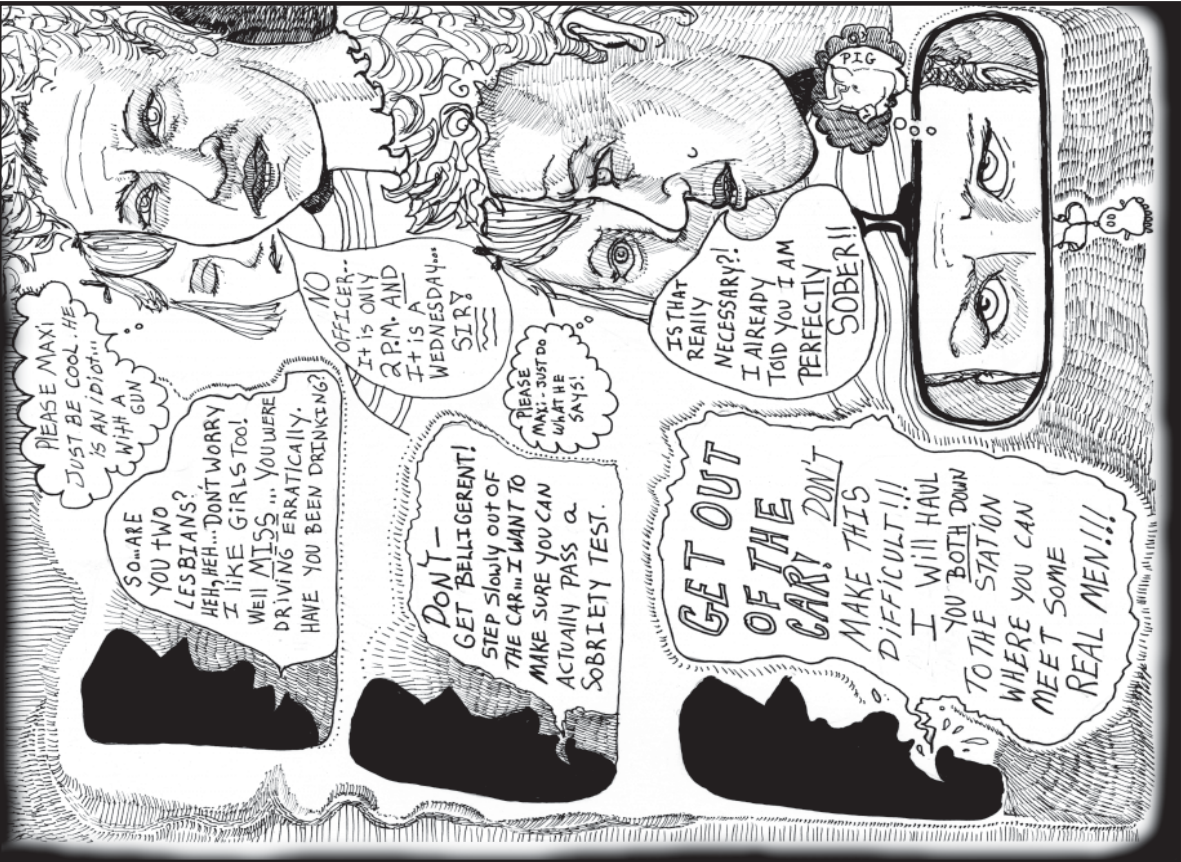 SO...ARE
YOU TWO
LESBIANS?
HEH, HEH...DON'T WORRY
I LIKE GIRLS TOO!
WELL MISS... YOU WERE
DRIVING ERRATICALLY.
HAVE YOU BEEN DRINKING?
PLEASE MAXI
JUST BE COOL. HE
IS AN IDIOT...
WITH A
GUN
NO
OFFICER...
IT IS ONLY
2 P.M. AND
IT IS A
WEDNESDAY...
SIR!
DON'T—
GET BELLIGERENT!
STEP SLOWLY OUT OF
THE CAR... I WANT TO
MAKE SURE YOU CAN
ACTUALLY PASS A
SOBRIETY TEST.
PLEASE
MAXI-JUST DO
WHAT HE
SAYS!
IS THAT
REALLY
NECESSARY?!
I ALREADY
TOLD YOU I AM
PERFECTLY
SOBER!!
GET OUT
OF THE
CAR! DON'T
MAKE THIS
DIFFICULT!!!
I WILL HAUL
YOU BOTH DOWN
TO THE STATION
WHERE YOU CAN
MEET SOME
REAL MEN!!!
PIG